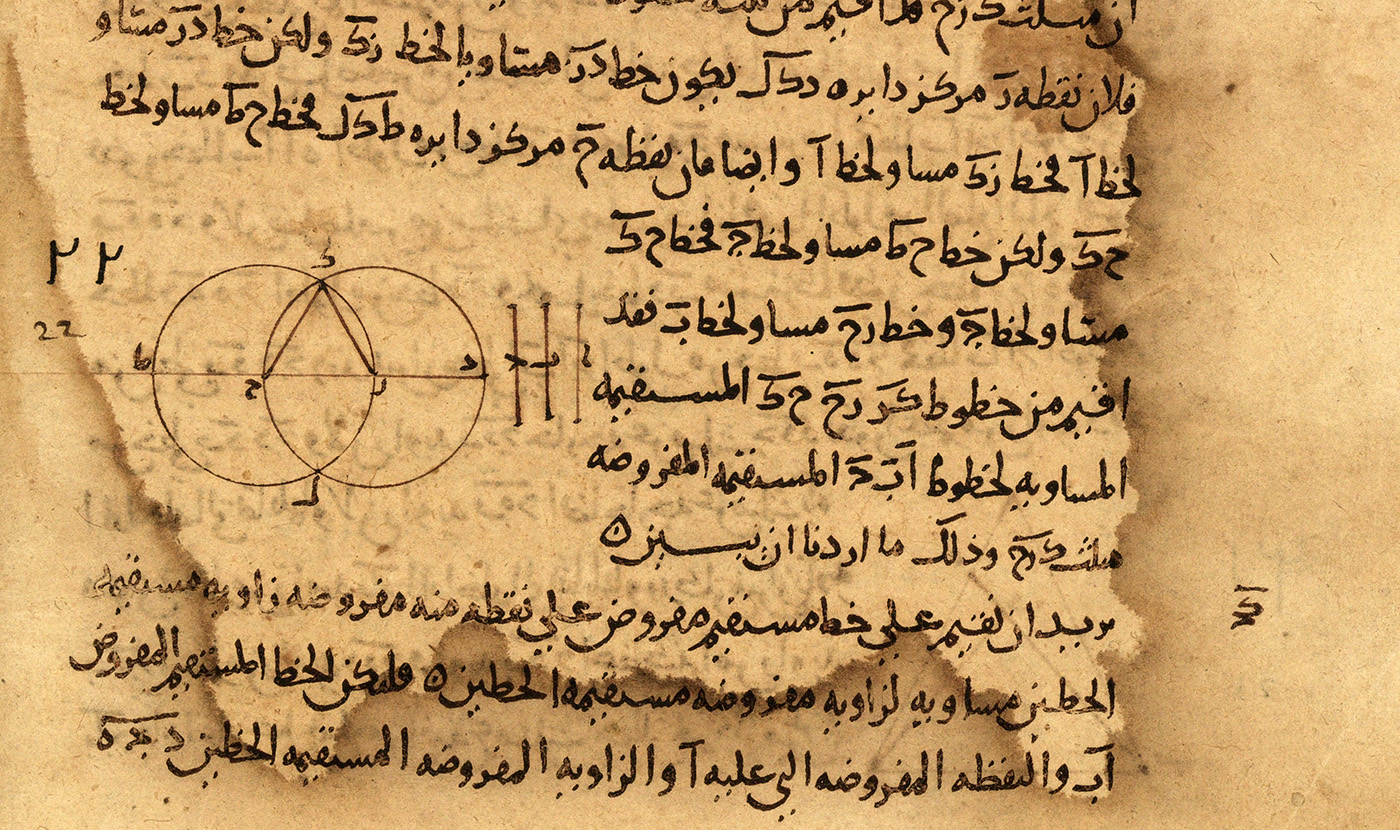 ان مثلث كرح قد اقيم من
فلان نقطه ر مركز دايره دكل يكون خط در مساويا لخط رك ولكن خط در مساو
لخط آ فخط رك مساو لخط آ وايضا فان نقطه ح مركز دايره طكل فخط ح ط مساو لخط
ح ك ولكن خط ح ط مساو لخط ج فخط ح ك
مساو لخط ج وخط رح مساو لخط ب فقد
اقيم من خطوط كر رح ح ك المستقيمه
المساويه لخطوط آ ب ج المستقيمه المفروضه
مثلث كرح وذلك ما اردنا ان نبين ه
نريد ان نقيم على خط مستقيم مفروض على نقطه منه مفروضه زاويه مستقيمه
الخطين مساويه لزاويه مفروضه مستقيمه الخطين ه فليكن الخط المستقيم المفروض
آب والنقطه المفروضه التي عليه آ والزاويه المفروضه المستقيمه الخطين د ج ه
كج
٢٢
22
ك
ط
ح
ر
د
ج
ب
ا
ل